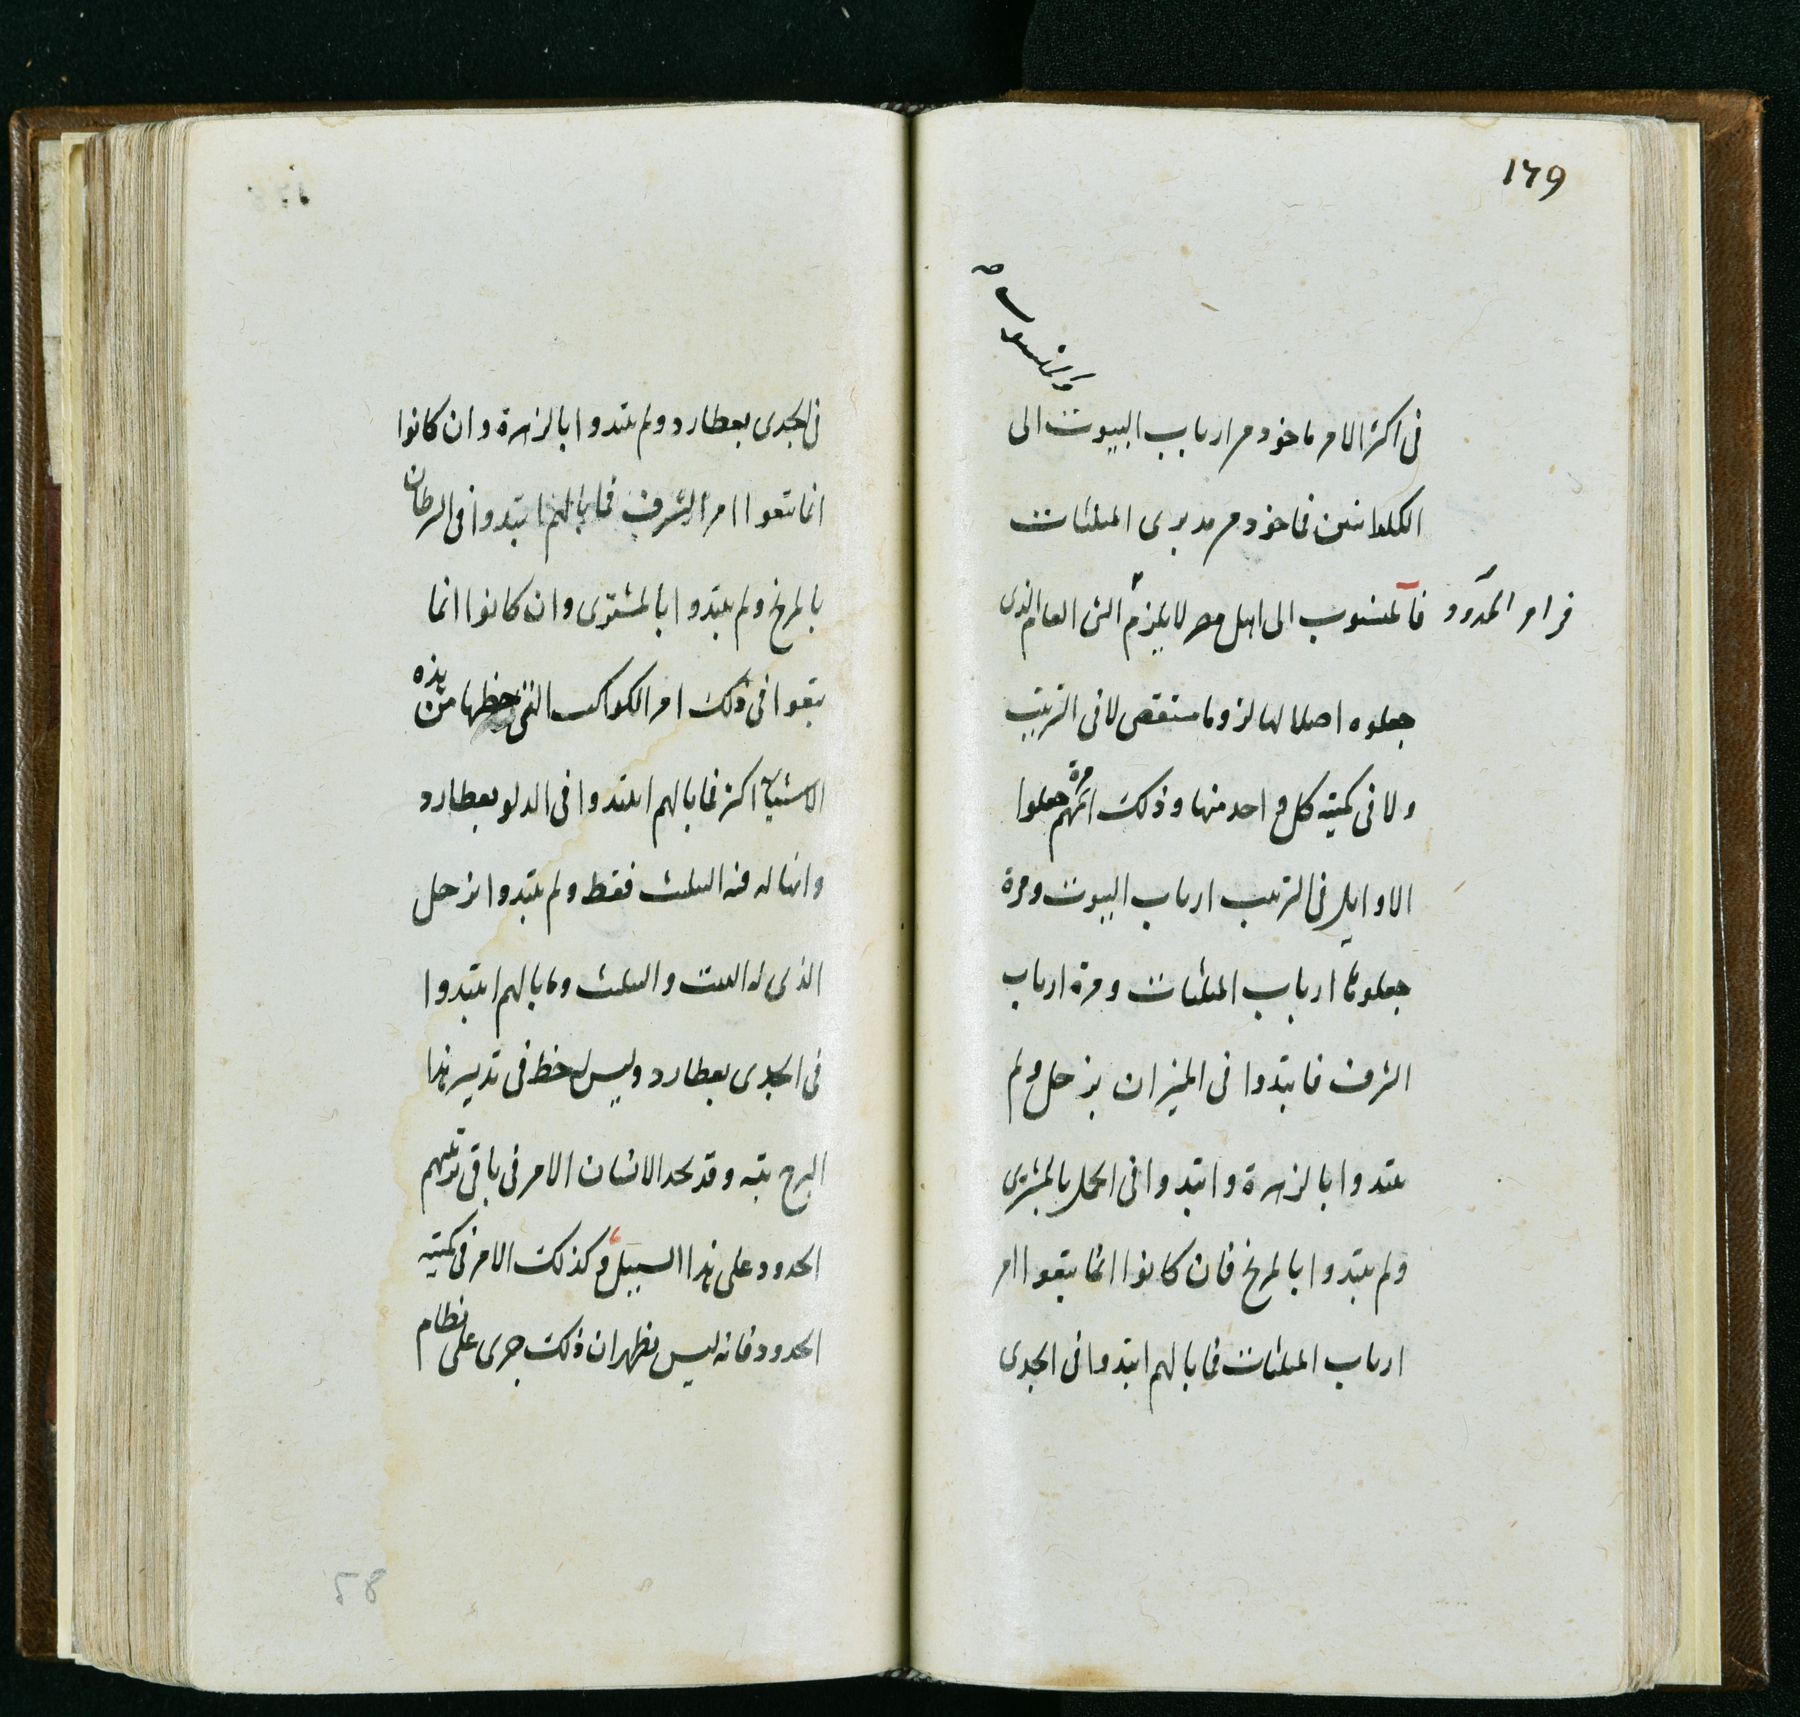 ١٦٩
والمنسوب
فى اكثر الامر ماخوذ من ارباب البيوت الى
الكلدانيين فماخوذ من مدبرى المثلثات
فالمنسوب الى اهل مصر لا يلزم الشى العام الذى
فى امر الحدود
جعلوه اصلا لها لزوما مستقصى لا فى الترتيب
ولا فى كمية كل واحد منها وذلك انهم مرة جعلوا
الاوايل فى الترتيب ارباب البيوت ومرة
جعلوها ارباب المثلثات ومرة ارباب
الشرف فابتدوا فى الميزان بزحل ولم
يبتدوا بالزهرة وابتدوا فى الحمل بالمشترى
ولم يبتدوا بالمريخ فان كانوا انما يتبعوا امر
ارباب المثلثات فما بالهم ابتدوا فى الجدى
فى الجدى بعطارد ولم يبتدوا بالزهرة وان كانوا
انما يتبعوا امر الشرف فما بالهم ابتدوا فى السرطان
بالمريخ ولم يبتدوا بالمشترى وان كانوا انما
يتبعوا فى ذلك امر الكواكب التى حظها من هذه
الاشياء اكثر فما بالهم ابتدوا فى الدلو بعطارد
وانما له فيه المثلث فقط ولم يبتدوا بزحل
الذى له البيت والمثلث وما بالهم ابتدوا
فى الجدى بعطارد وليس له حظ فى تدبير هذا
البرج بتة وقد يجد الانسان الامر فى باقى ترتيبهم
الحدود على هذا السبيل وكذلك الامر فى كمية
الحدود فانه ليس يظهر ان ذلك جرى على نظام
58